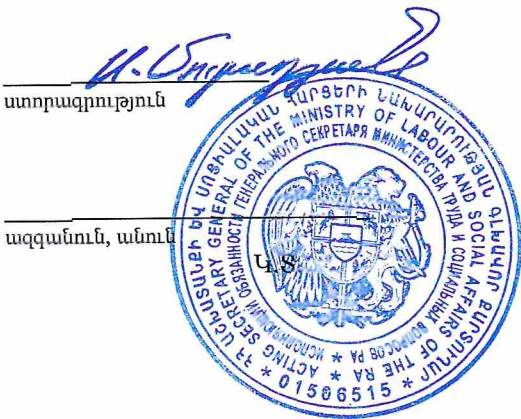 ստորագրություն
ազգանուն, անուն
Կ.Տ
ՀՀ ԱՇԽԱՏԱՆՔԻ ԵՎ ՍՈՑԻԱԼԱԿԱՆ ՀԱՐՑԵՐԻ ՆԱԽԱՐԱՐՈՒԹՅԱՆ ԳԼԽԱՎՈՐ ՔԱՐՏՈՒՂԱՐ
* ACTING SECRETARY GENERAL OF THE MINISTRY OF LABOUR AND SOCIAL AFFAIRS OF THE RA
* ИСПОЛНЯЮЩИЙ ОБЯЗАННОСТИ ГЕНЕРАЛЬНОГО СЕКРЕТАРЯ МИНИСТЕРСТВА ТРУДА И СОЦИАЛЬНЫХ ВОПРОСОВ РА
* 01506515 *